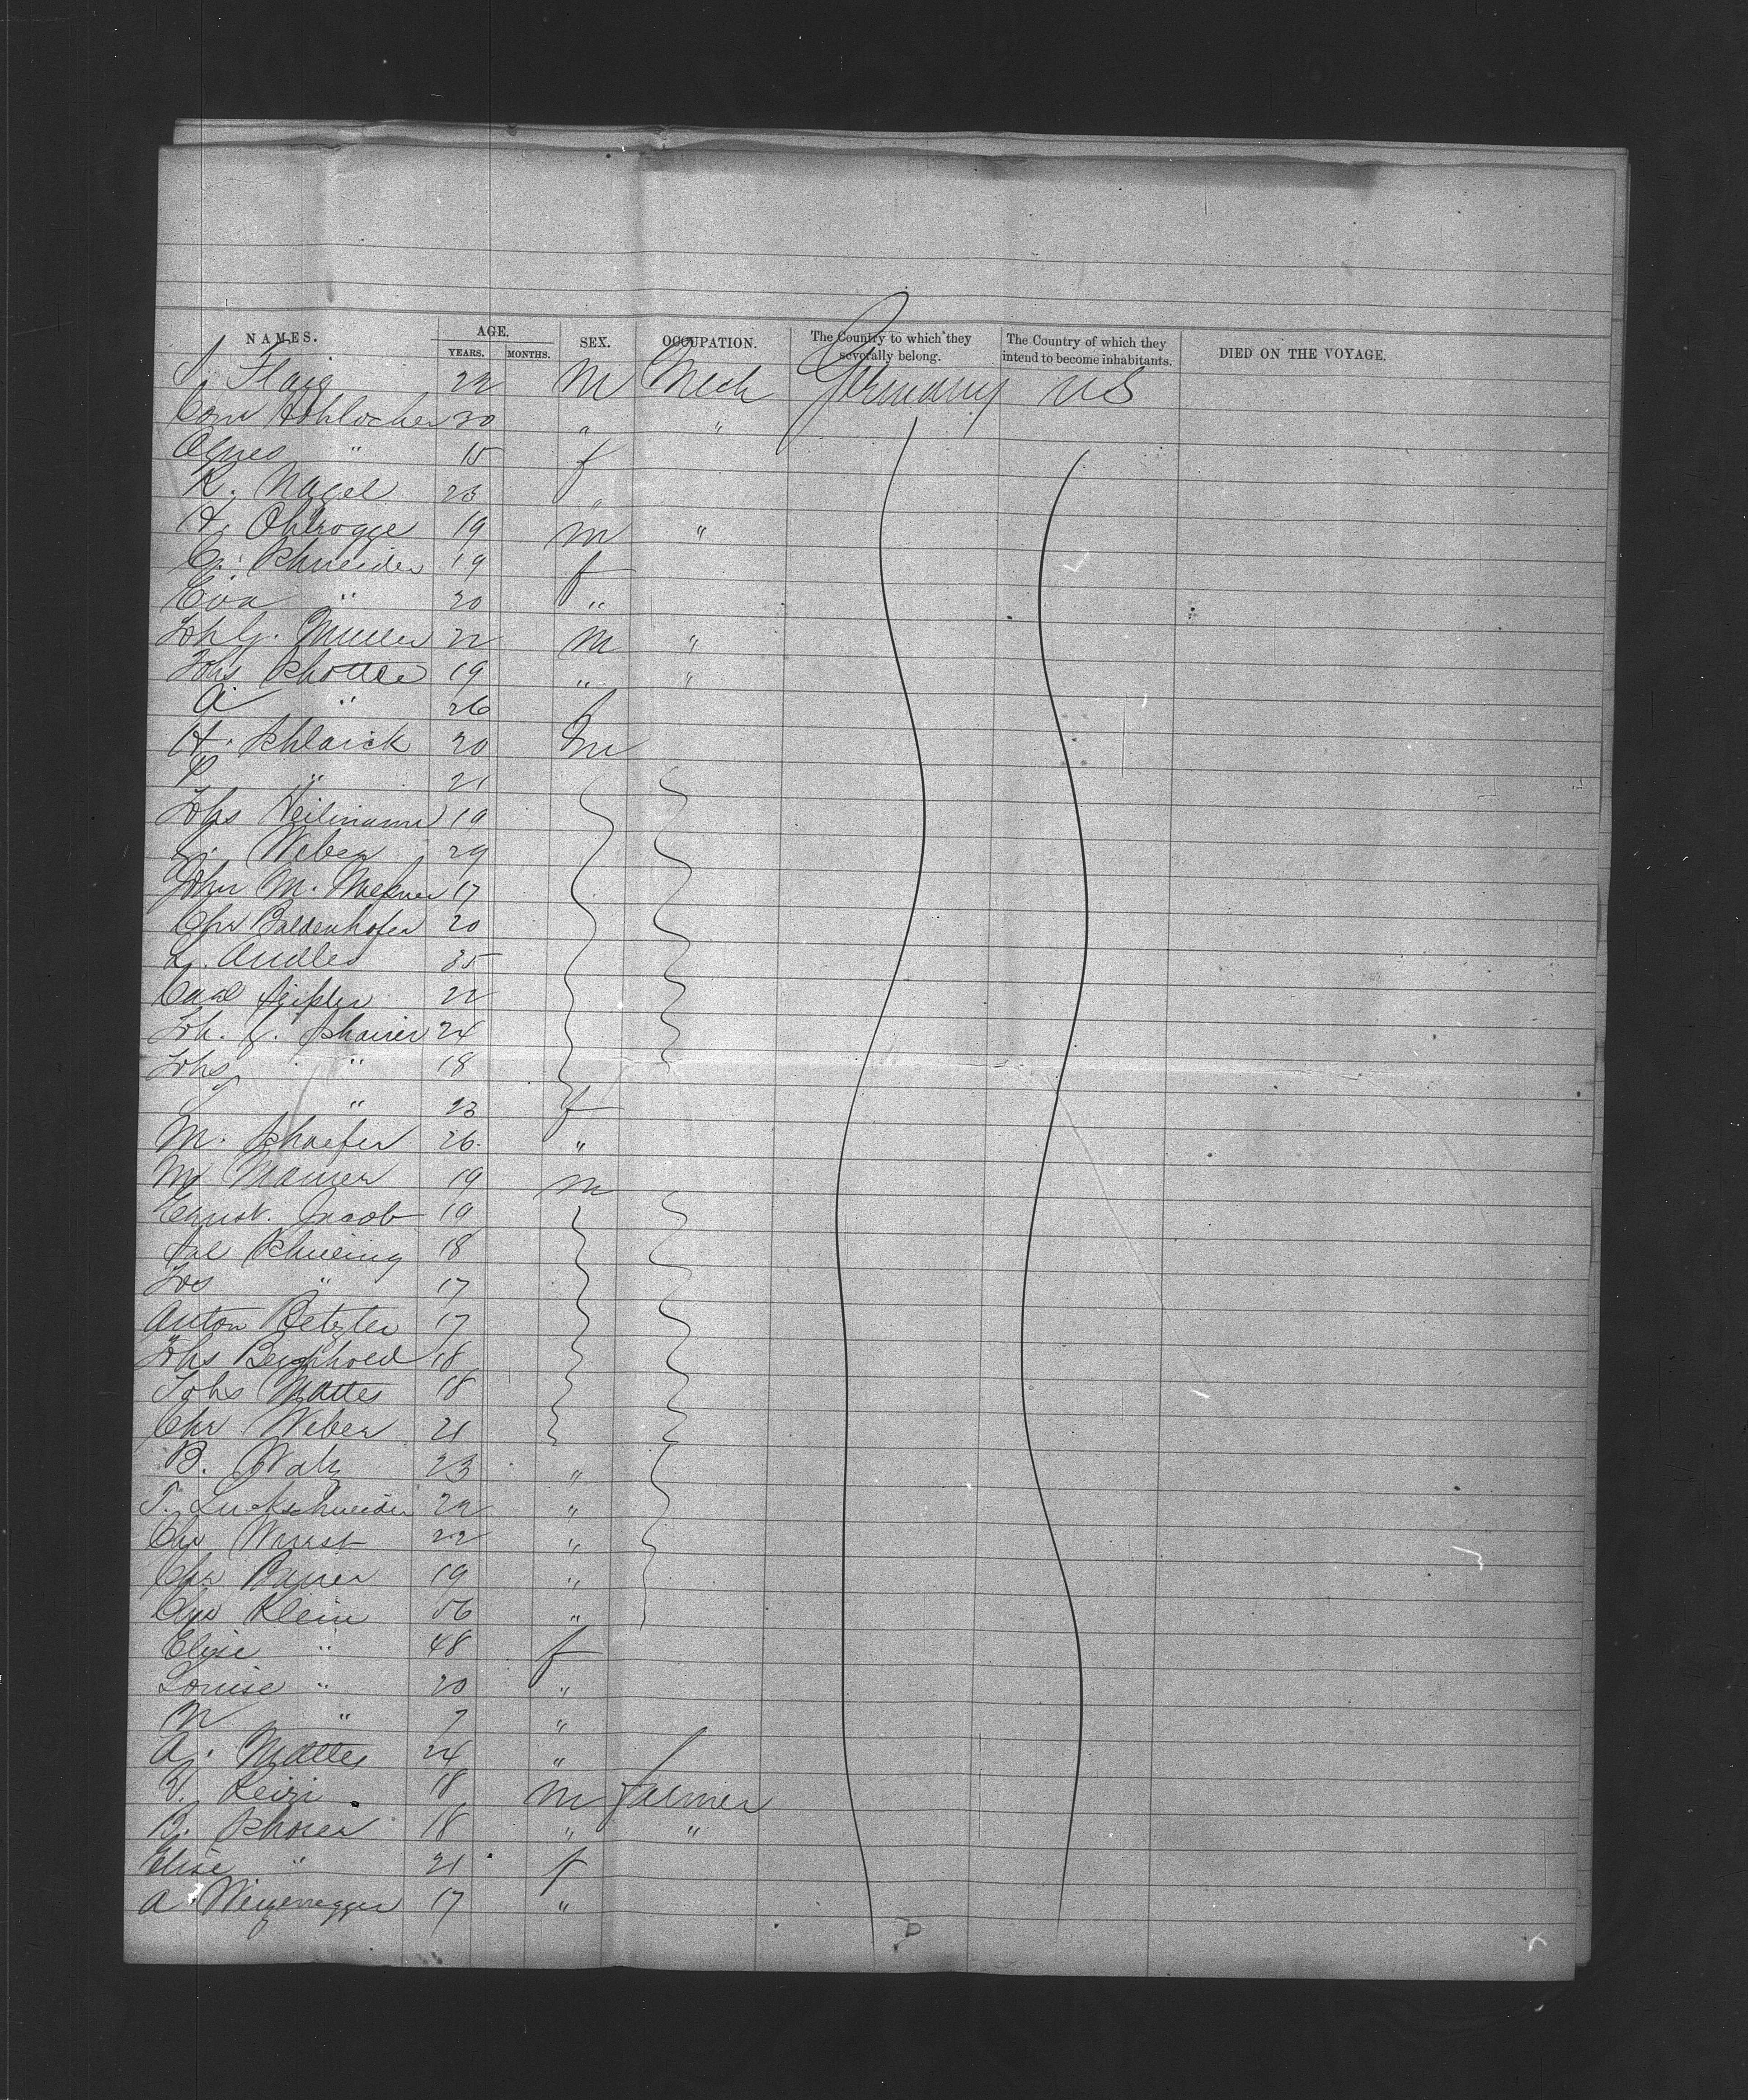 NAMES. AGE. YEARS. MONTHS. SEX. OCCUPATION. The Country to which they severally belong. The Country of which they intend to become inhabitants. DIED ON THE VOYAGE.
Flaig 22 M Mech Germany US
Hohlocher 30 " "
Agnes " 15 f
R. Nagel 23 "
H. Ohlrogge 19 m "
C. Schneider 19 f
Eva " 20 "
Joh G. Muller 22 m "
Johs Schotte 19 " "
A " 26 f
H. Schlaich 20 m
P " 21
Johs Heilmann 19
Weber 29
John M. 17
Chr Baldenhofer 20
L. 35
Carl 22
Joh. G. Schairer 24
Johs " 18
" 23 f
M. Schaefer 26 "
M Maurer 19 m
Ernst. Jacob 19
Sal 18
Jos " 17
Anton Betzler 17
Johs 18
Johs Mattes 18
Chr Weber 21
B. Walz 23 "
T. 22 "
Chr Wurst 22 "
Chr 19 "
Chr Klein 56 "
Elise " 48 f
Louise " 20 "
" 7 "
A. Mattes 24 "
18 m farmer
B. 18 " "
Elise " 21 f
A. 17 "